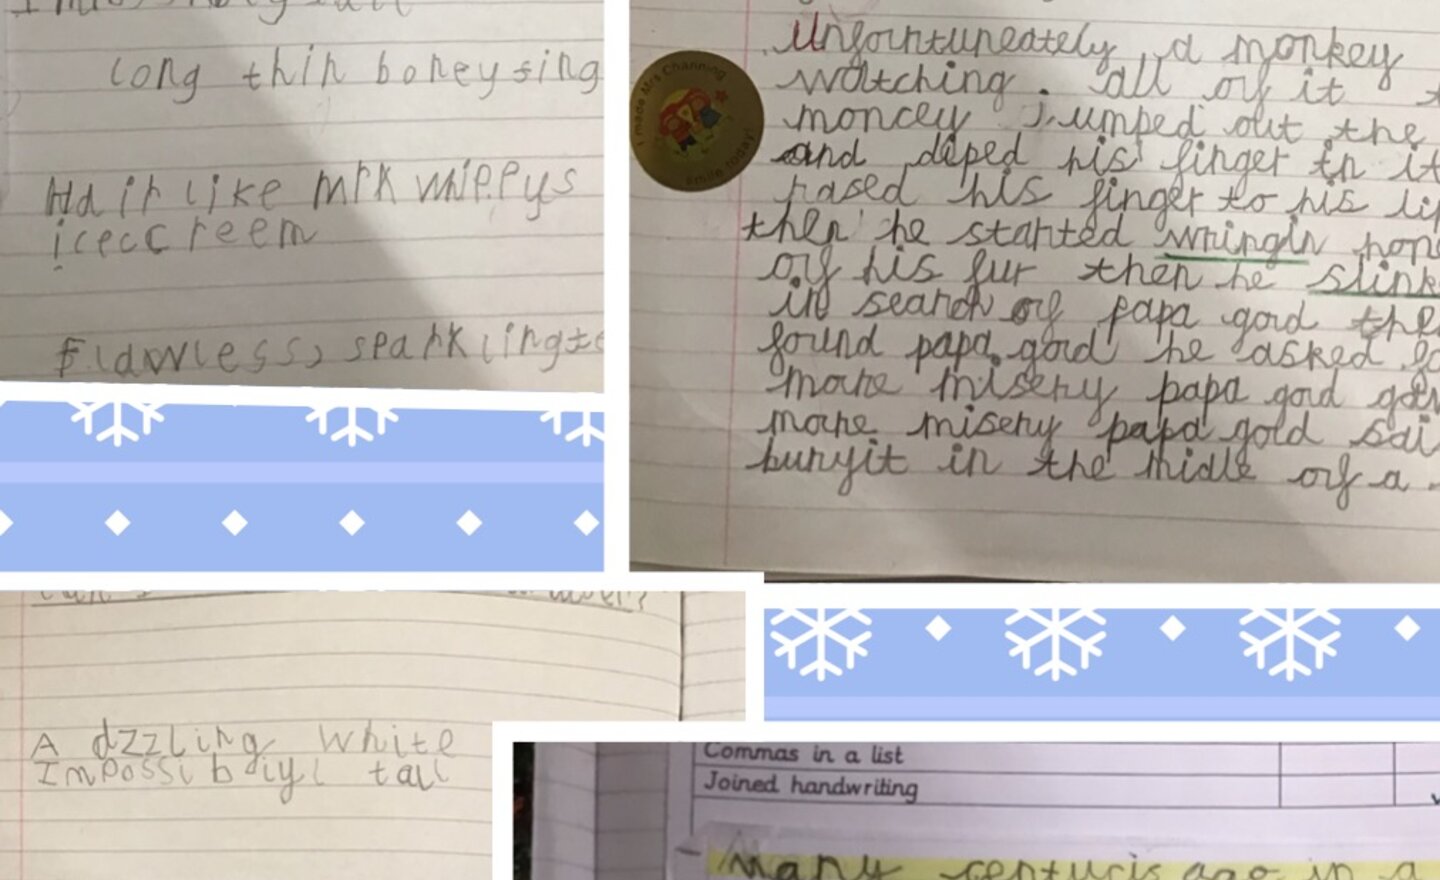 long thin boney sing
Hair like mrk whippys
icecc reem
Flawless, sparkling te
Unfountuneately, a monkey
watching. all of it
moncey jumped out the
and diped his finger in it
rased his finger to his lip
then he started wringin hon
of his fur then he slink
in search of papa god the
found papa god he asked fo
more misery papa god gav
more misery papa god sai
buryit in the midle of a
I made Mrs Channing
smile today!
A dzzling white
Impossibiyl tall
Commas in a list
Joined handwriting
Many centuris ago in a